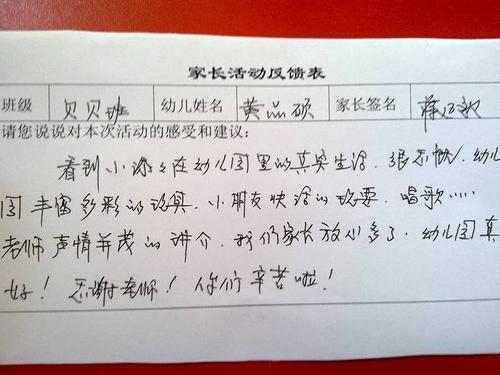 家长活动反馈表
班级 贝贝班 幼儿姓名 黄品硕 家长签名
请您说说对本次活动的感受和建议：
看到小源々在幼儿园里的真实生活．很不惧．幼儿
园丰富多彩的玩具．小朋友快活的玩耍．唱歌……
老师声情并茂的讲介．我们家长放心多了．幼儿园真
好！感谢老师！你们辛苦啦！